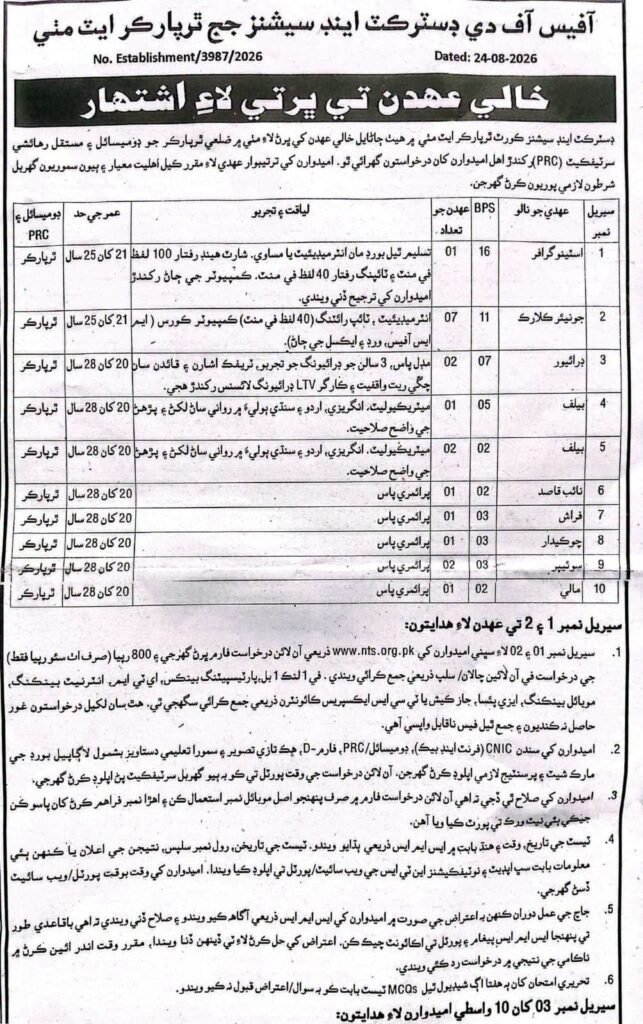 آفيس آف دي ڊسٽرڪٽ اينڊ سيشنز جج ٿرپارڪر ايٽ مٺي
No. Establishment/3987/2026 Dated: 24-08-2026
خالي عهدن تي ڀرتي لاءِ اشتهار
ڊسٽرڪٽ اينڊ سيشنز ڪورٽ ٿرپارڪر ايٽ مٺي ۾ هيٺ ڄاڻايل خالي عهدن کي ڀرڻ لاءِ مٺي ۾ ضلعي ٿرپارڪر جو ڊوميسائل ۽ مستقل رهائشي
سرٽيفڪيٽ (PRC) رکندڙ اهل اميدوارن کان درخواستون گهرائي ٿو. اميدوارن کي ترتيبوار عهدي لاءِ مقرر ڪيل اهليت معيار ۽ ٻيون سموريون گهربل
شرطون لازمي پوريون ڪرڻ گهرجن.
سيريل نمبر | عهدي جو نالو | BPS | عهدن جو تعداد | لياقت ۽ تجربو | عمر جي حد | ڊوميسائل ۽ PRC
1 | اسٽينوگرافر | 16 | 01 | تسليم ٿيل بورڊ مان انٽرميڊيئيٽ يا مساوي. شارٽ هينڊ رفتار 100 لفظ
في منٽ ۽ ٽائپنگ رفتار 40 لفظ في منٽ. ڪمپيوٽر جي ڄاڻ رکندڙ
اميدوارن کي ترجيح ڏني ويندي. | 21 کان 25 سال | ٿرپارڪر
2 | جونيئر ڪلارڪ | 11 | 07 | انٽرميڊيئيٽ، ٽائپ رائٽنگ (40 لفظ في منٽ) ڪمپيوٽر ڪورس (ايم
ايس آفيس، ورڊ ۽ ايڪسل جي ڄاڻ). | 21 کان 25 سال | ٿرپارڪر
3 | ڊرائيور | 07 | 02 | مڊل پاس، 3 سالن جو ڊرائيونگ جو تجربو، ٽريفڪ اشارن ۽ قائدن سان
چڱي ريت واقفيت ۽ ڪارگر LTV ڊرائيونگ لائسنس رکندڙ هجي. | 20 کان 28 سال | ٿرپارڪر
4 | بيلف | 05 | 01 | ميٽريڪيوليٽ، انگريزي، اردو ۽ سنڌي ٻوليءَ ۾ رواني ساڻ لکڻ ۽ پڙهڻ
جي واضح صلاحيت. | 20 کان 28 سال | ٿرپارڪر
5 | بيلف | 02 | 02 | ميٽريڪيوليٽ. انگريزي، اردو ۽ سنڌي ٻوليءَ ۾ رواني ساڻ لکڻ ۽ پڙهڻ
جي واضح صلاحيت. | 20 کان 28 سال | ٿرپارڪر
6 | نائب قاصد | 02 | 01 | پرائمري پاس | 20 کان 28 سال | ٿرپارڪر
7 | فراش | 03 | 01 | پرائمري پاس | 20 کان 28 سال | ٿرپارڪر
8 | چوڪيدار | 03 | 01 | پرائمري پاس | 20 کان 28 سال | ٿرپارڪر
9 | سوئيپر | 03 | 02 | پرائمري پاس | 20 کان 28 سال | ٿرپارڪر
10 | مالي | 02 | 01 | پرائمري پاس | 20 کان 28 سال | ٿرپارڪر
سيريل نمبر 1 ۽ 2 تي عهدن لاءِ هدايتون:
1. سيريل نمبر 01 ۽ 02 لاءِ سڀني اميدوارن کي www.nts.org.pk ذريعي آن لائن درخواست فارم ڀرڻ گهرجي ۽ 800 رپيا (صرف اٺ سئو رپيا فقط)
جي درخواست في آن لائين چالان/ سلپ ذريعي جمع ڪرائي ويندي. في 1 لنڪ 1 بل، پارٽيسپيٽنگ بينڪس، اي ٽي ايم، انٽرنيٽ بينڪنگ،
موبائل بينڪنگ، ايزي پئسا، جاز ڪيش يا ٽي سي ايس ايڪسپريس ڪائونٽرن ذريعي جمع ڪرائي سگهجي ٿي. هٿ سان لکيل درخواستون غور
حاصل نه ڪنديون ۽ جمع ٿيل فيس ناقابل واپسي آهي.
2. اميدوارن کي سندن CNIC (فرنٽ اينڊ بيڪ)، ڊوميسائل/PRC، فارم-D، هڪ تازي تصوير ۽ سمورا تعليمي دستاويز بشمول لاڳاپيل بورڊ جي
مارڪ شيٽ ۽ پرسنٽيج لازمي اپلوڊ ڪرڻ گهرجن. آن لائن درخواست جي وقت پورٽل تي ڪو به ٻيو گهربل سرٽيفڪيٽ پڻ اپلوڊ ڪرڻ گهرجي.
3. اميدوارن کي صلاح ٿي ڏجي ته اهي آن لائن درخواست فارم ۾ صرف پنهنجو اصل موبائل نمبر استعمال ڪن ۽ اهڙا نمبر فراهم ڪرڻ کان پاسو ڪن
جيڪي ٻئي نيٽ ورڪ تي پورٽ ڪيا ويا آهن.
4. ٽيسٽ جي تاريخ، وقت ۽ هنڌ بابت ۾ ايس ايم ايس ذريعي ٻڌايو ويندو. ٽيسٽ جي تاريخن، رول نمبر سلپس، نتيجن جي اعلان يا ڪنهن ٻئي
معلومات بابت سڀ اپڊيٽ ۽ نوٽيفڪيشنز اين ٽي ايس جي ويب سائيٽ/پورٽل تي اپلوڊ ڪيا ويندا. اميدوارن کي وقت بوقت پورٽل/ويب سائيٽ
ڏسڻ گهرجي.
5. جاچ جي عمل دوران ڪنهن به اعتراض جي صورت ۾ اميدوارن کي ايس ايم ايس ذريعي آگاهه ڪيو ويندو ۽ صلاح ڏني ويندي ته اهي باقاعدي طور
تي پنهنجا ايس ايم ايس پيغام ۽ پورٽل تي اڪائونٽ چيڪ ڪن. اعتراض کي حل ڪرڻ لاءِ ٽي ڏينهن ڏنا ويندا، مقرر وقت اندر ائين ڪرڻ ۾
ناڪامي جي نتيجي ۾ درخواست رد ڪئي ويندي.
6. تحريري امتحان کان به هفتا اڳ شيڊيول ٿيل MCQs ٽيسٽ بابت ڪو به سوال/اعتراض قبول نه ڪيو ويندو.
سيريل نمبر 03 کان 10 واسطي اميدوارن لاءِ هدايتون: